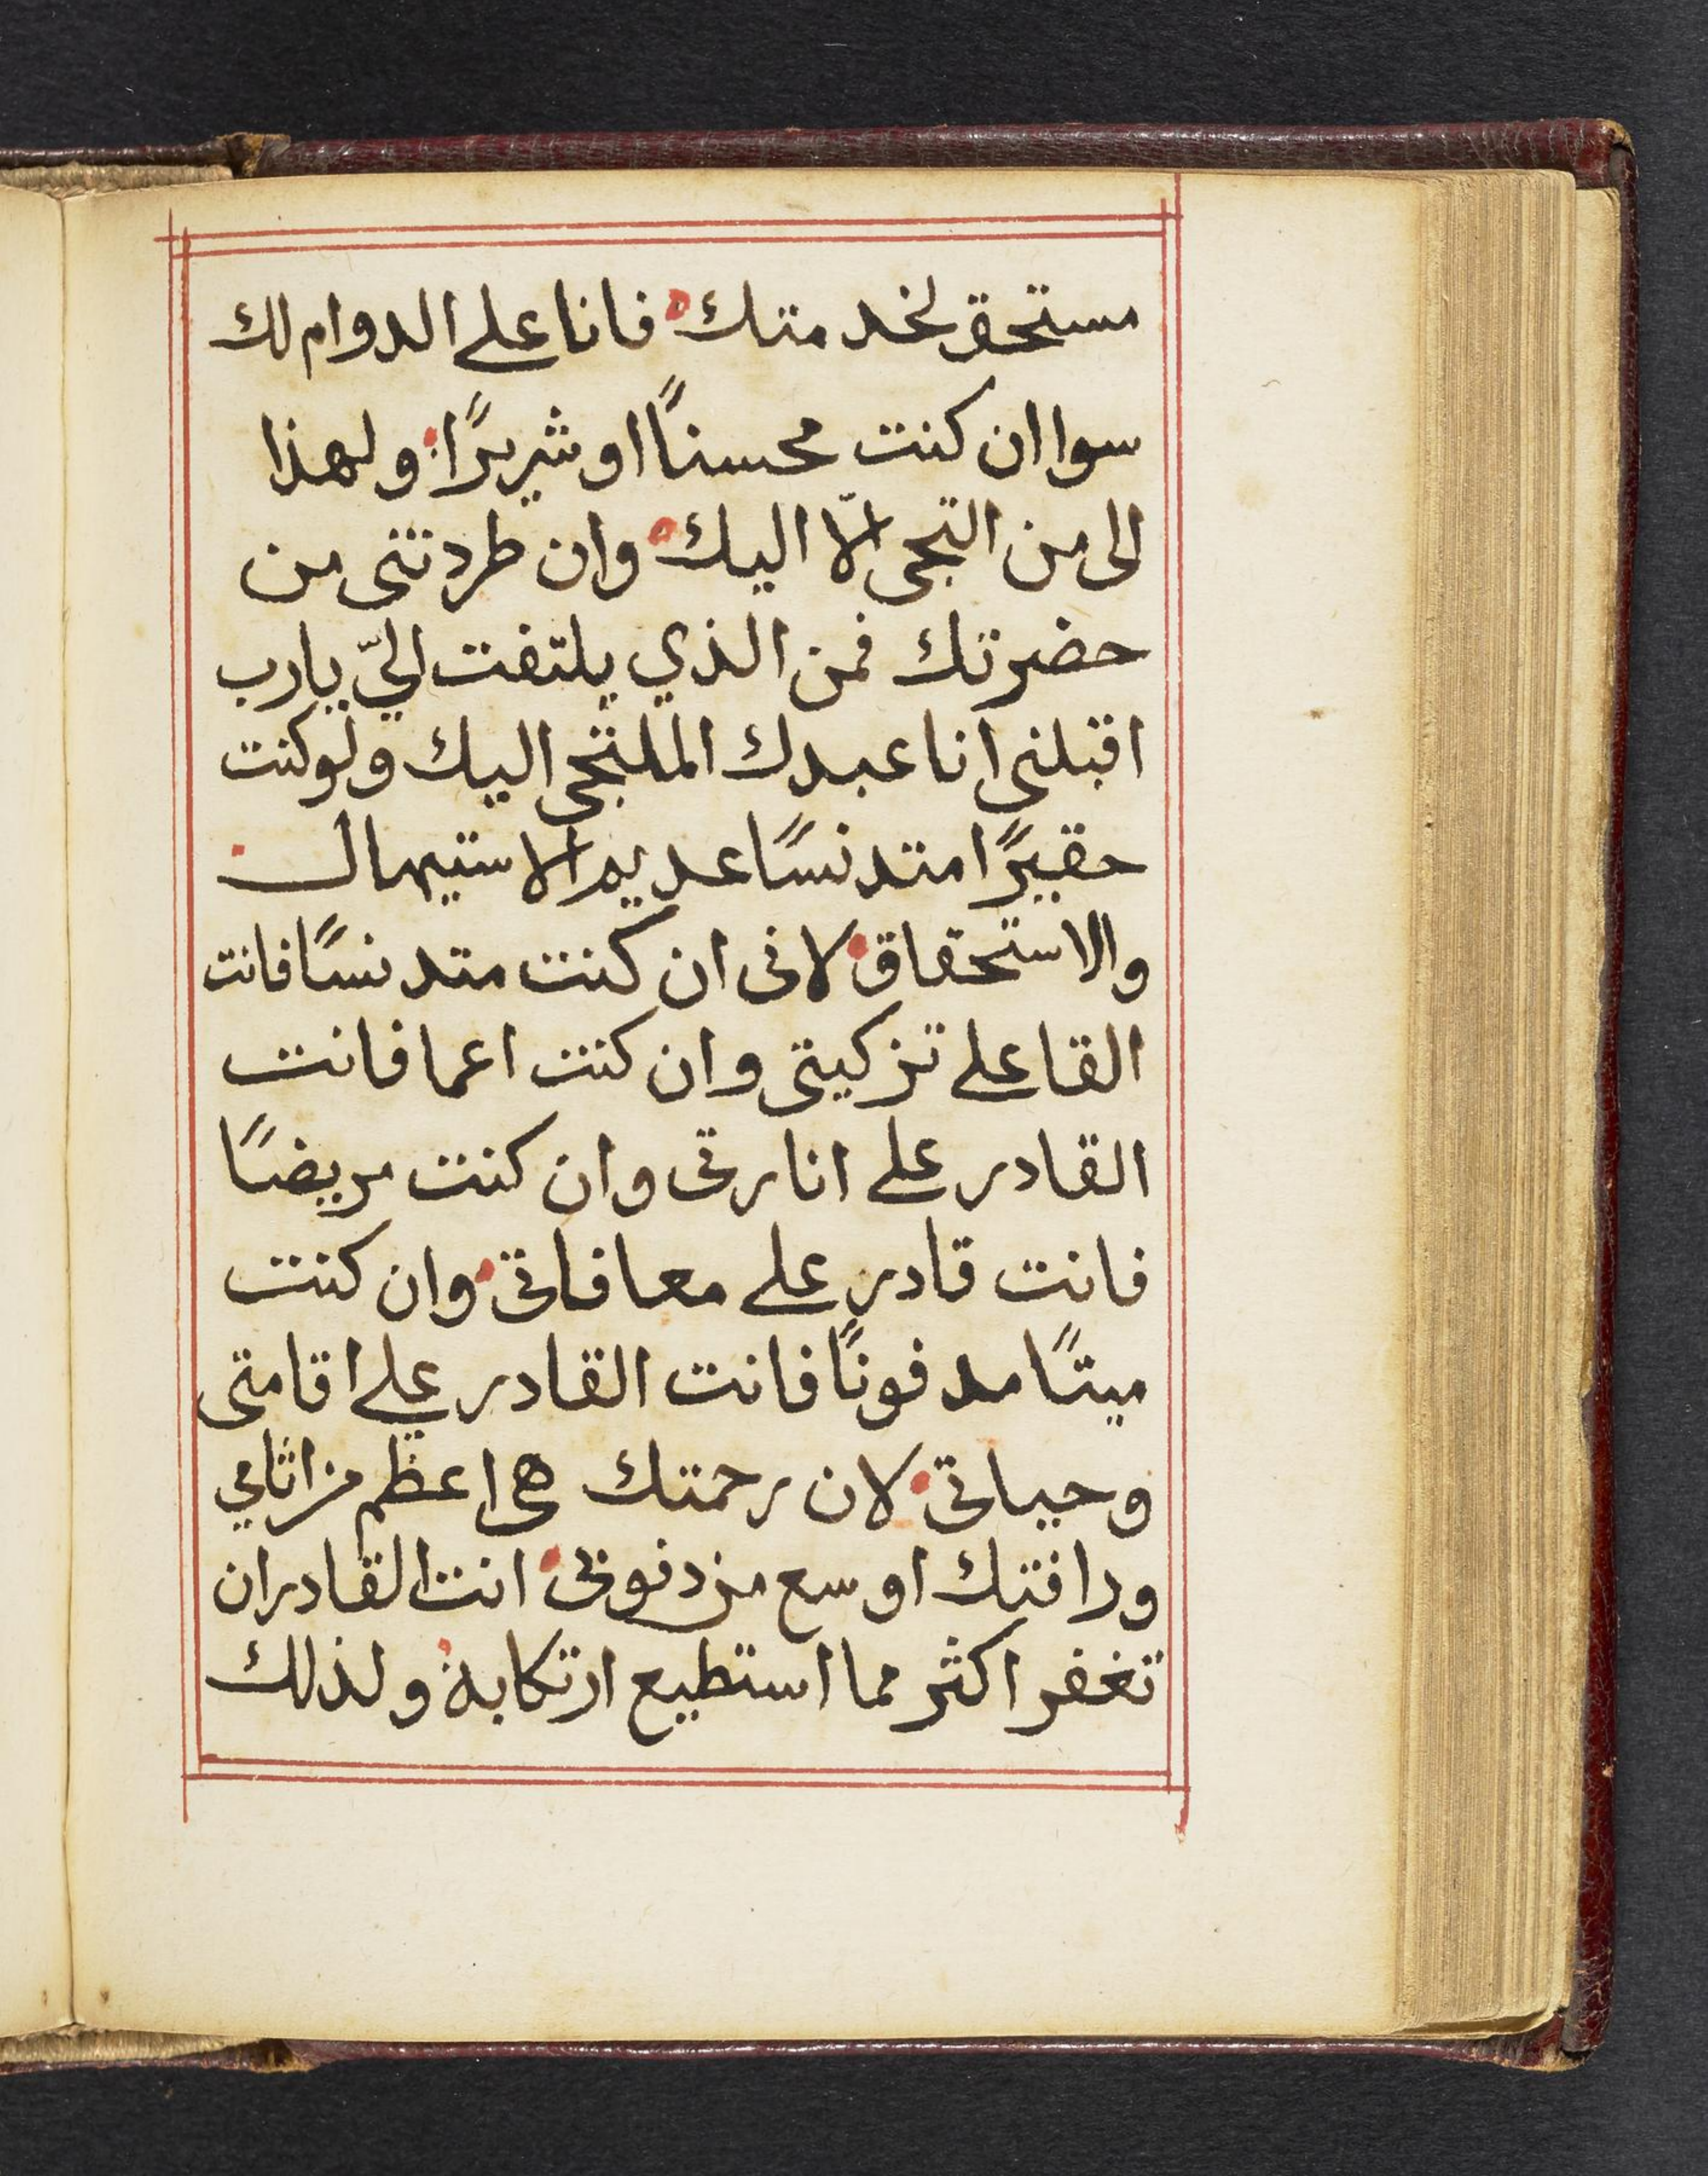 مستحق لخدمتك فانا على الدوام لك
سوا ان كنت محسنًا او شريرًا ولهذا
الى من التجى الّا اليك وان طردتنى من
حضرتك فمن الذي يلتفت اليّ يارب
اقبلنى انا عبدك الملتجى اليك ولو كنت
حقيرًا متدنسًا عديم الاستيهال
والاستحقاق لانى ان كنت متدنسًا فانت
القا على تزكيتى وان كنت اعما فانت
القادر على انارتى وان كنت مريضًا
فانت قادر على معافاتى وان كنت
ميتًا مدفونًا فانت القادر على اقامتى
وحياتى لان رحمتك هى اعظم من اثامي
ورافتك اوسع من دنوبى انت القادر ان
تغفر اكثر مما استطيع ارتكابه ولذلك